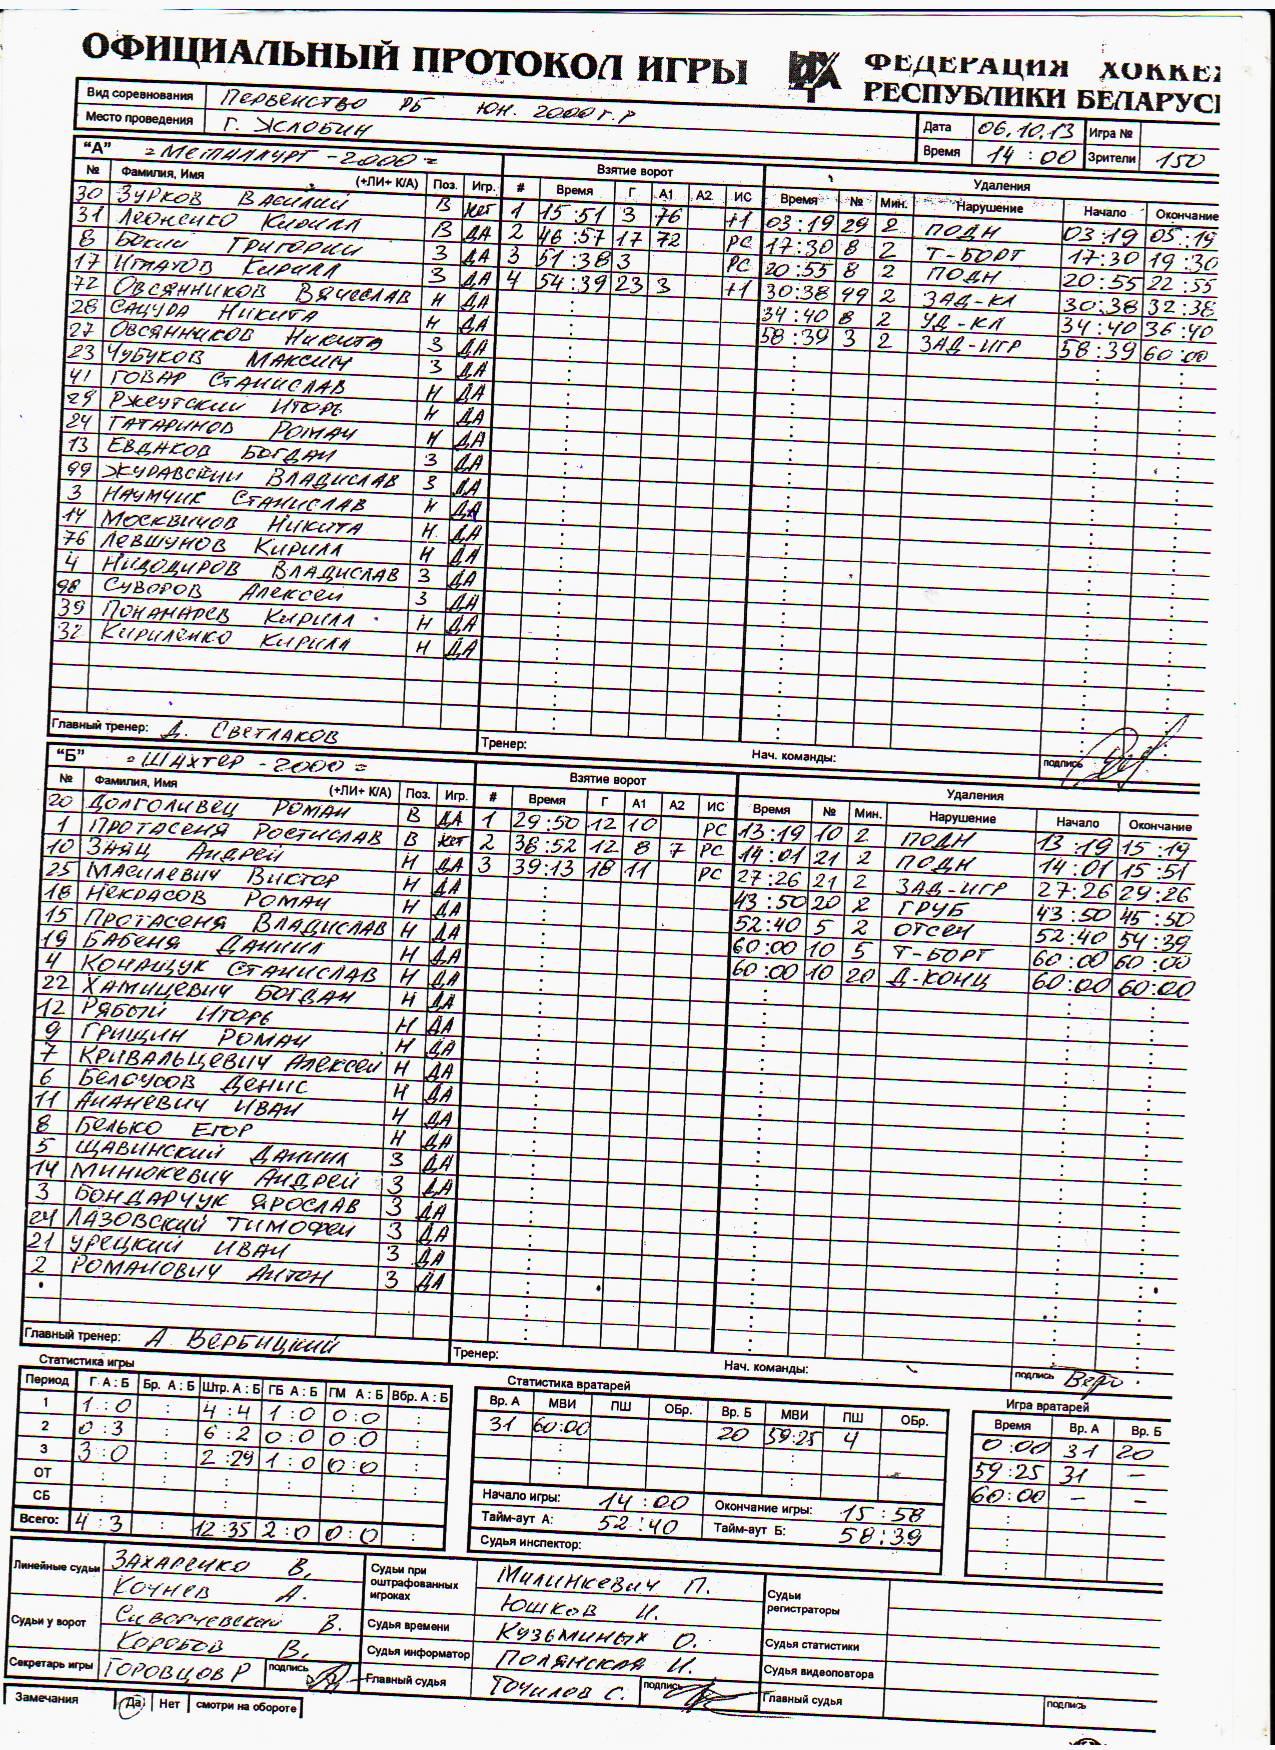 ОФИЦИАЛЬНЫЙ ПРОТОКОЛ ИГРЫ
ФЕДЕРАЦИЯ ХОККЕ
РЕСПУБЛИКИ БЕЛАРУС
Вид соревнования Первенство РБ юн. 2000 г.р
Место проведения г. Жлобин
Дата 06.10.13 Игра №
Время 14:00 Зрители 150
"А" Металлург-2000
Взятие ворот Удаления
№ Фамилия, Имя (+ЛИ+ К/А) Поз. Игр. # Время Г А1 А2 ИС Время № Мин. Нарушение Начало Окончание
30 Зурков Василий В нет 1 15:51 3 76 +1 03:19 29 2 ПОДН 03:19 05:19
31 Леоненко Кирилл В ДА 2 46:57 17 72 РС 17:30 8 2 Т-БОРТ 17:30 19:30
8 Бокий Григорий З ДА 3 51:38 3 РС 20:55 8 2 ПОДН 20:55 22:55
17 Игнатов Кирилл З ДА 4 54:39 23 3 +1 30:38 99 2 ЗАД-КЛ 30:38 32:38
72 Овсянников Вячеслав Н ДА 34:40 8 2 УД-КЛ 34:40 36:40
28 Сацура Никита Н ДА 58:39 3 2 ЗАД-ИГР 58:39 60:00
27 Овсянников Никита З ДА
23 Чубуков Максим З ДА
41 Говар Станислав Н ДА
29 Ржеутский Игорь Н ДА
24 Татаринов Роман Н ДА
13 Евдаков Богдан З ДА
99 Журавский Владислав З ДА
3 Наумчик Станислав Н ДА
14 Москвичов Никита Н ДА
76 Левшунов Кирилл Н ДА
4 Владислав З ДА
98 Суворов Алексей З ДА
39 Понамарев Кирилл Н ДА
32 Кириленко Кирилл Н ДА
Главный тренер: Д. Светлаков Тренер: Нач. команды: подпись
"Б" Шахтер-2000
Взятие ворот Удаления
№ Фамилия, Имя (+ЛИ+ К/А) Поз. Игр. # Время Г А1 А2 ИС Время № Мин. Нарушение Начало Окончание
20 Долголивец Роман В ДА 1 29:50 12 10 РС 13:19 10 2 ПОДН 13:19 15:19
1 Протасеня Ростислав В нет 2 38:52 12 8 7 РС 14:01 21 2 ПОДН 14:01 15:51
10 Заяц Андрей Н ДА 3 39:13 18 11 РС 27:26 21 2 ЗАД-ИГР 27:26 29:26
25 Масилевич Виктор Н ДА 43:50 20 2 ГРУБ 43:50 45:50
18 Некрасов Роман Н ДА 52:40 5 2 ОТСЕЧ 52:40 54:39
15 Протасеня Владислав Н ДА 60:00 10 5 Т-БОРТ 60:00 60:00
19 Бабеня Даниил Н ДА 60:00 10 20 Д-КОНЦ 60:00 60:00
4 Конащук Станислав Н ДА
22 Хамицевич Богдан Н ДА
12 Рябый Игорь Н ДА
9 Грищин Роман Н ДА
7 Кривальцевич Алексей Н ДА
6 Белоусов Денис Н ДА
11 Ананевич Иван Н ДА
8 Белько Егор Н ДА
5 Щавинский Даниил З ДА
14 Минюкевич Андрей З ДА
3 Бондарчук Ярослав З ДА
24 Лазовский Тимофей З ДА
21 Урецкий Иван З ДА
2 Романович Антон З ДА
Главный тренер: А. Вербицкий Тренер: Нач. команды: подпись
Статистика игры Статистика вратарей Игра вратарей
Период Г А : Б Бр. А : Б Штр. А : Б ГБ А : Б ГМ А : Б Вбр. А : Б
1 1:0 : 4:4 1:0 0:0 :
2 0:3 : 6:2 0:0 0:0 :
3 3:0 : 2:29 1:0 0:0 :
ОТ
СБ
Всего: 4:3 : 12:35 2:0 0:0 :
Вр. А МВИ ПШ ОБр. Вр. Б МВИ ПШ ОБр.
31 60:00 20 59:25 4
Начало игры: 14:00 Окончание игры: 15:58
Тайм-аут А: 52:40 Тайм-аут Б: 58:39
Судья инспектор:
Время Вр. А Вр. Б
0:00 31 20
59:25 31 –
60:00 – –
Линейные судьи Захаренко В.
Кочнев А.
Судьи у ворот В.
Коробов В.
Секретарь игры Горовцов Р подпись
Судьи при оштрафованных игроках Милинкевич П.
Юшков И.
Судья времени Кузьминых О.
Судья информатор Полянская И.
Главный судья Точилов С. подпись
Судьи регистраторы
Судья статистики
Судья видеоповтора
Главный судья подпись
Замечания Да Нет смотри на обороте